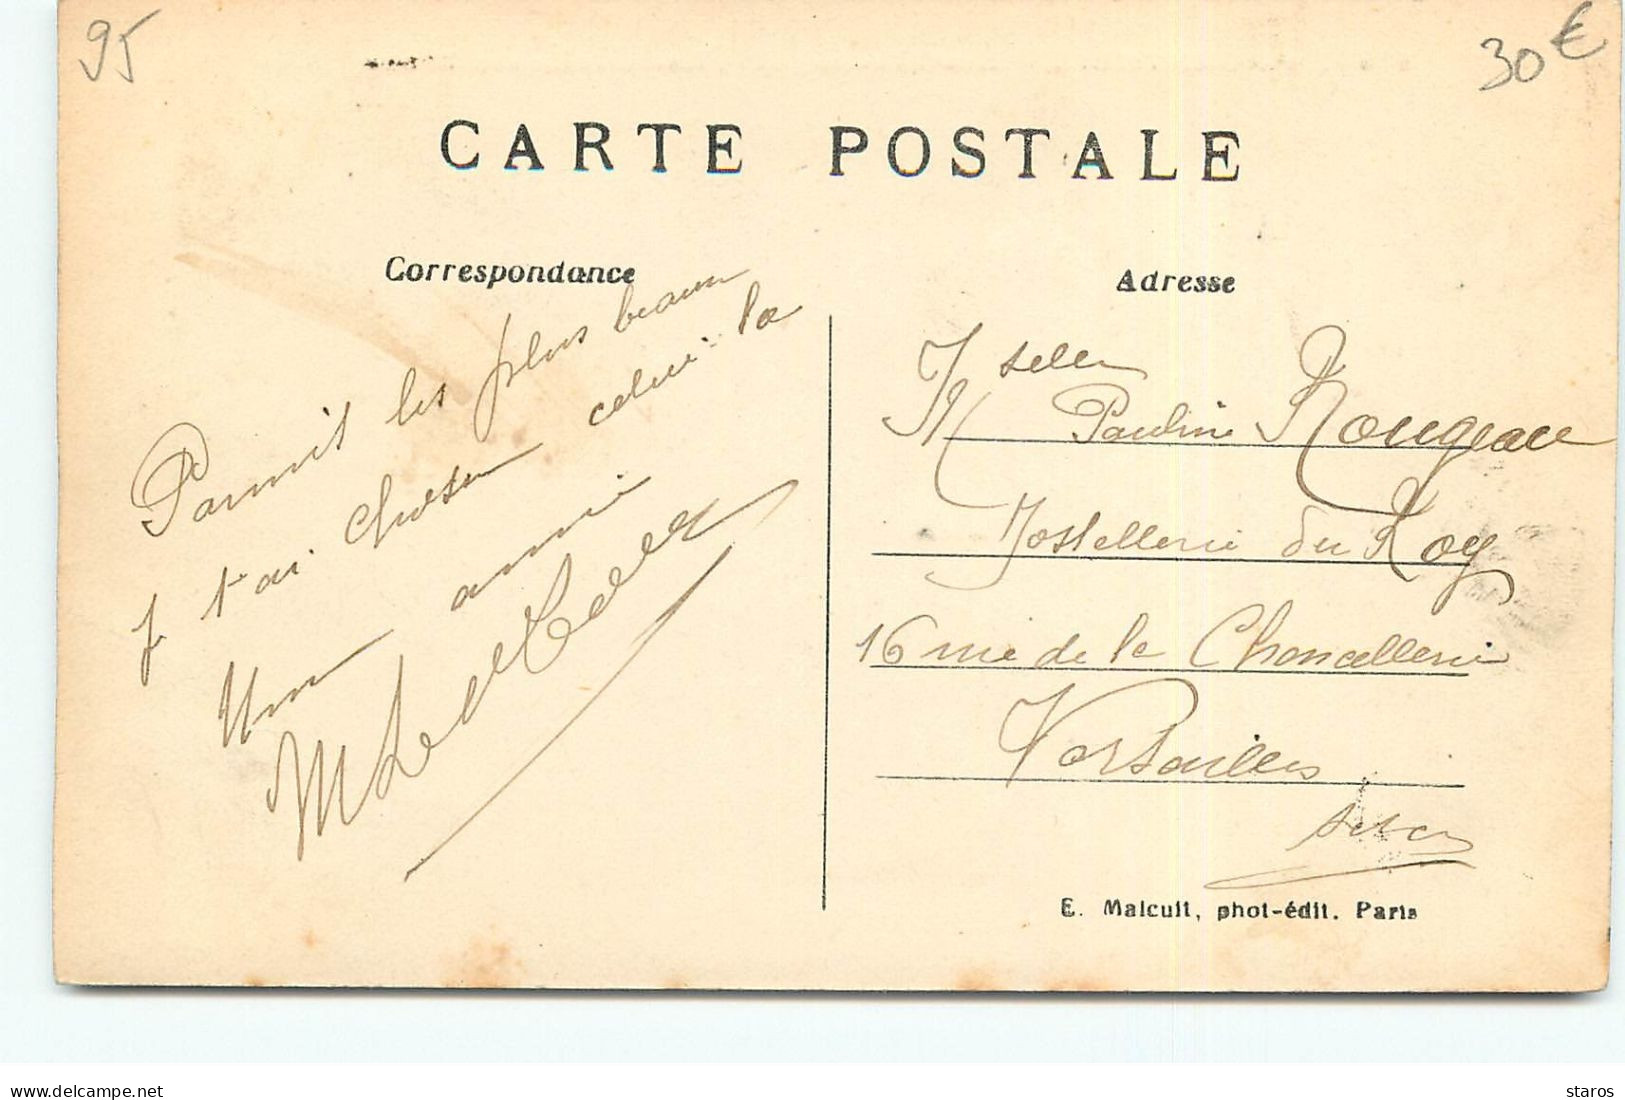 95
30€
CARTE POSTALE
Correspondance
Adresse
Parmis les plus beaux
J t'ai choisen celui la
Un ammi
M
Mselle
Pauline Rougeau
Hostellerie du Roy
16 rue de la Chancellerie
Versailles
E. Malcuit, phot-édit. Paris
www.delcampe.net
staros